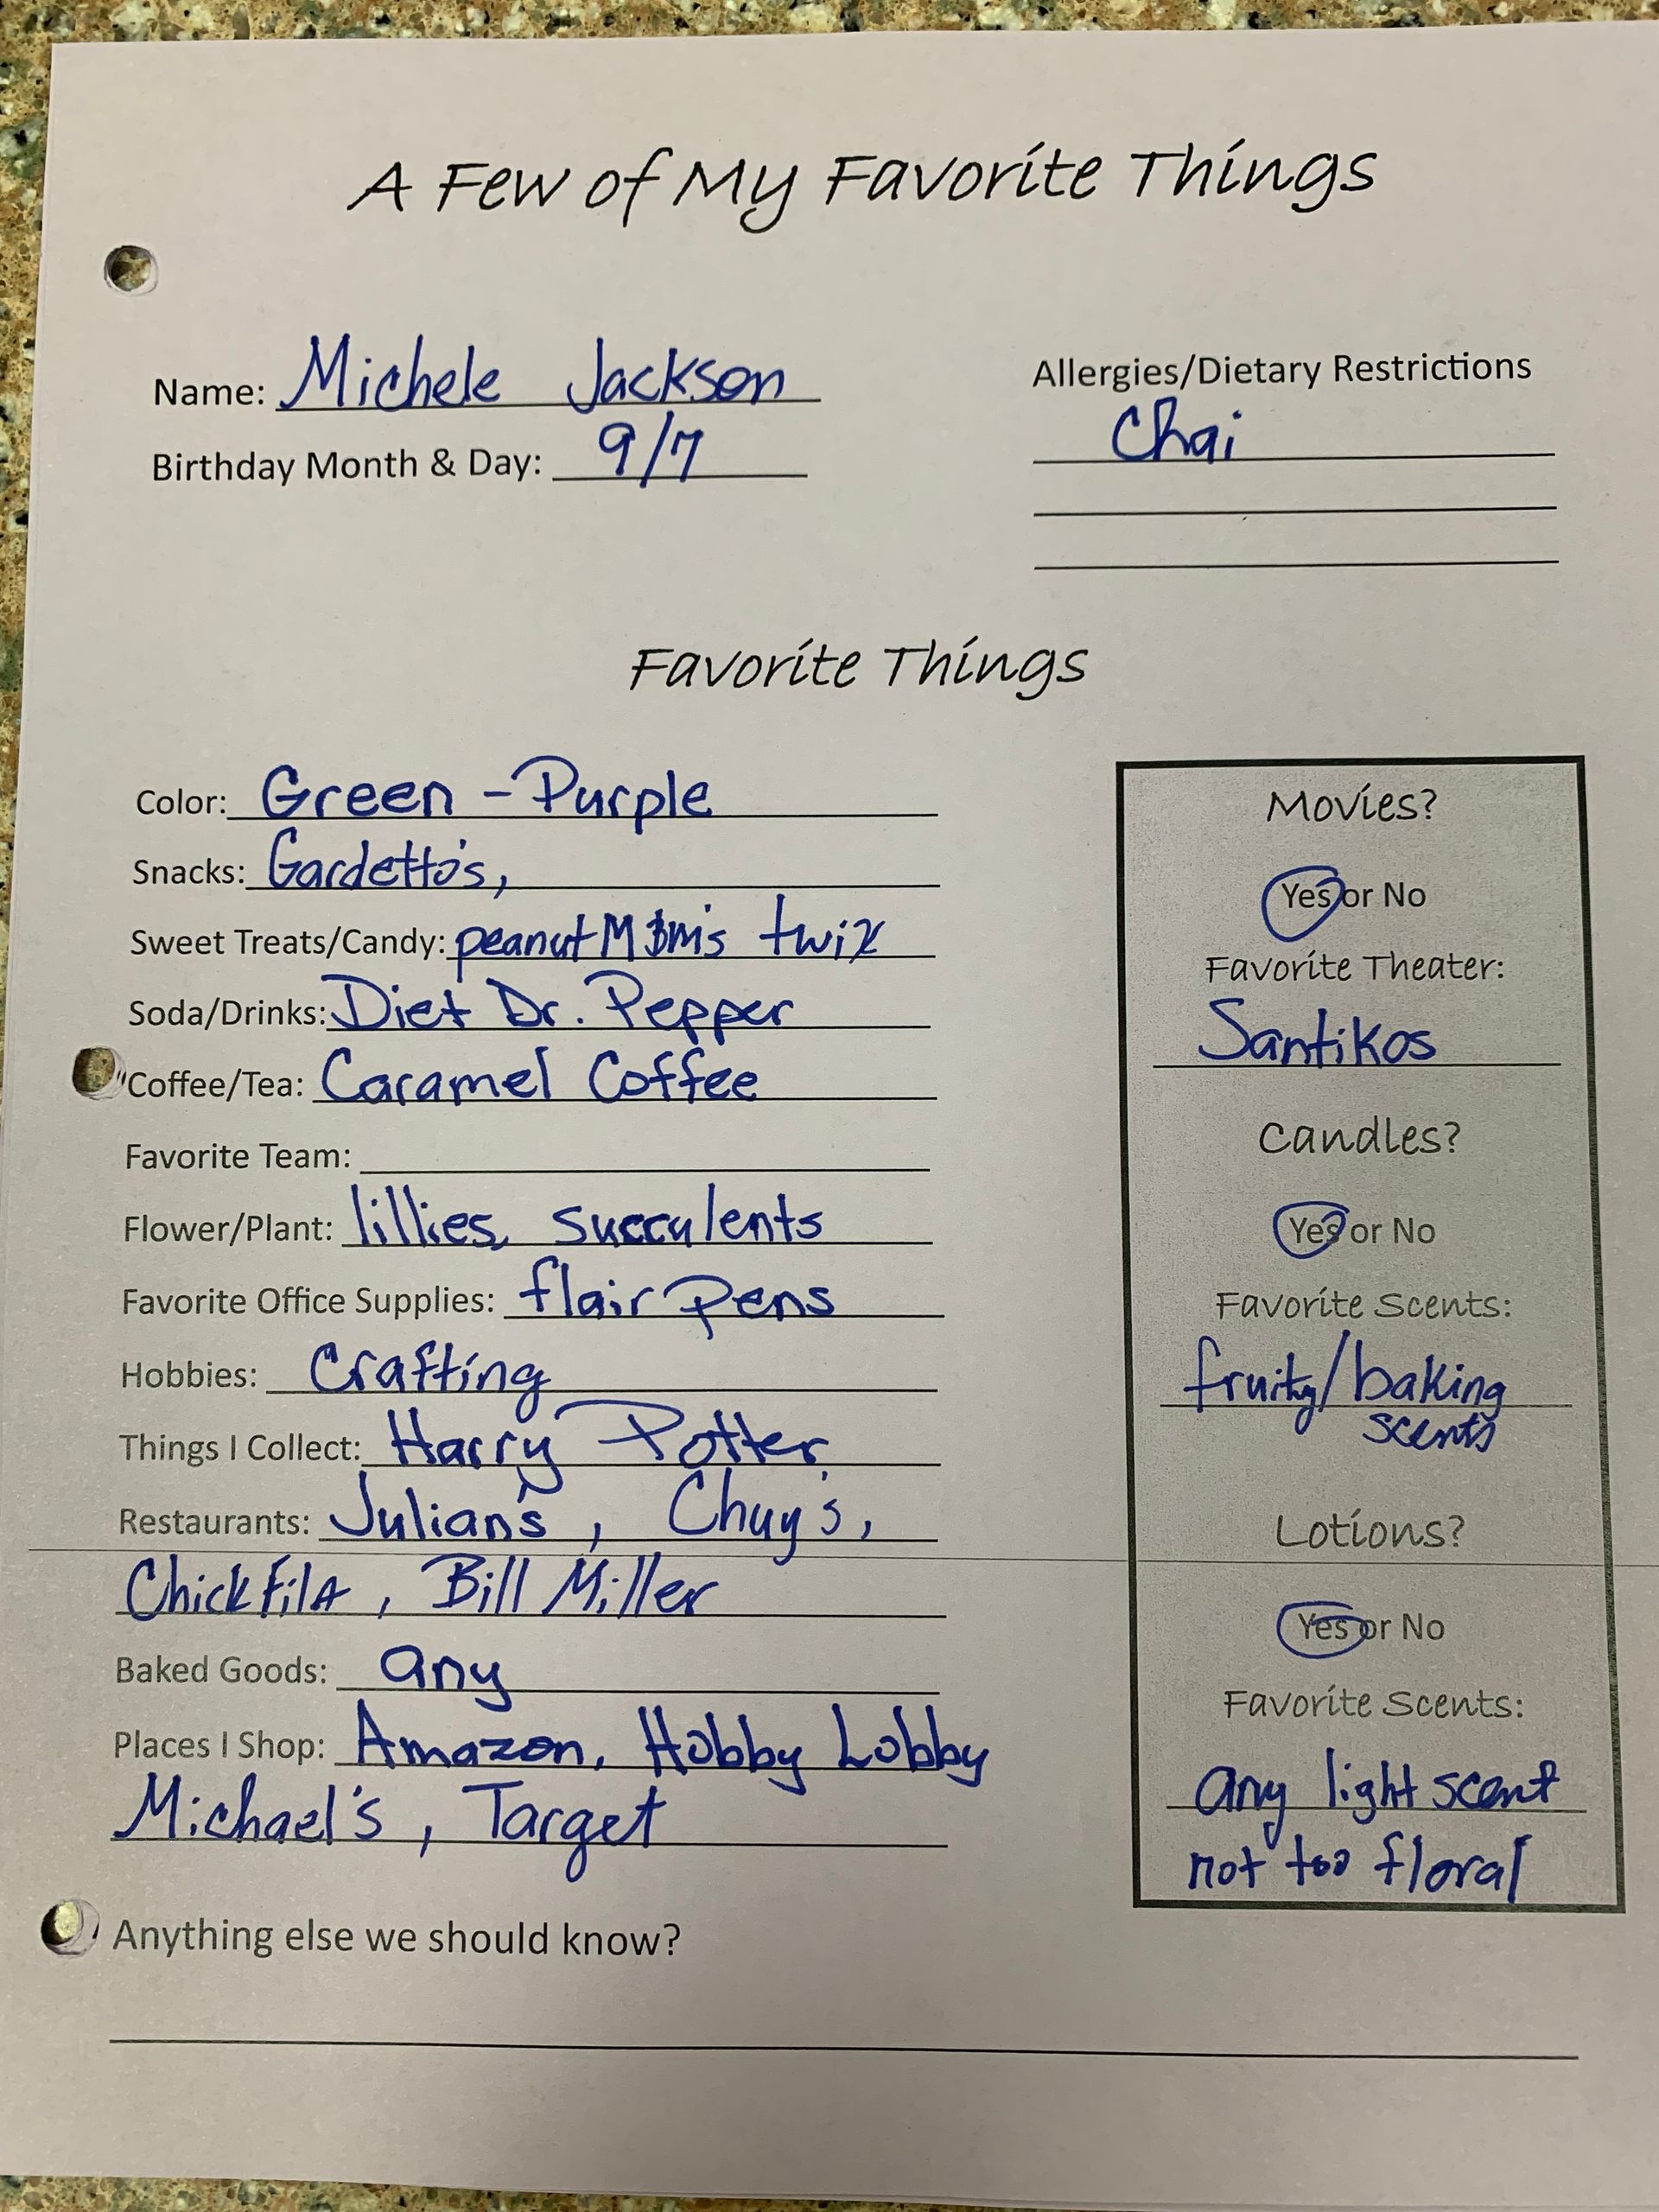 A Few of My Favorite Things
Name: Michele Jackson
Birthday Month & Day: 9/7
Allergies/Dietary Restrictions
Chai
Favorite Things
Color: Green - Purple
Snacks: Gardetto's,
Sweet Treats/Candy: peanut M&M's twix
Soda/Drinks: Diet Dr. Pepper
Coffee/Tea: Caramel Coffee
Favorite Team:
Flower/Plant: lillies, succulents
Favorite Office Supplies: flair pens
Hobbies: Crafting
Things I Collect: Harry Potter
Restaurants: Julian's, Chuy's,
ChickFilA, Bill Miller
Baked Goods: any
Places I Shop: Amazon, Hobby Lobby
Michael's, Target
Anything else we should know?
Movies?
Yes or No
Favorite Theater:
Santikos
Candles?
Yes or No
Favorite Scents:
fruity/baking
scents
Lotions?
Yes or No
Favorite Scents:
any light scent
not too floral